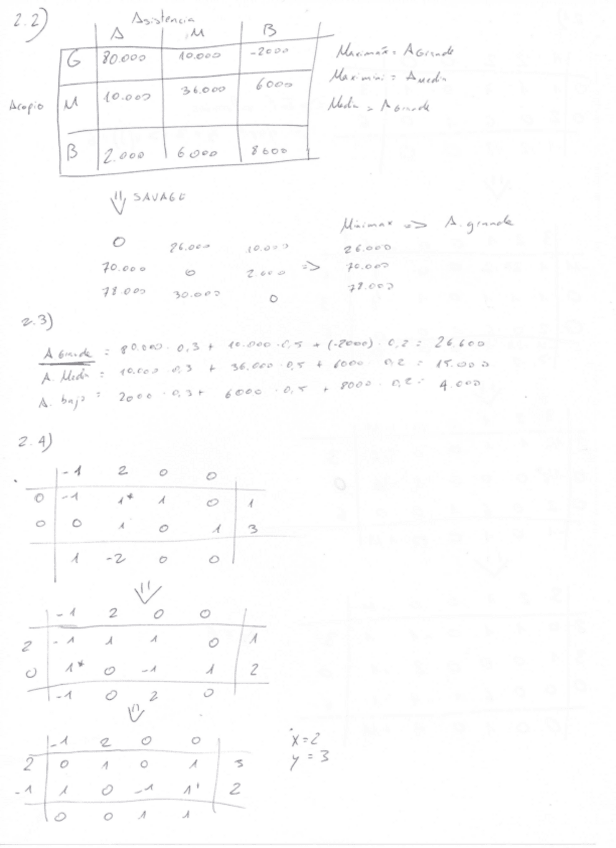 2.2)
Asistencia
A M B
G 80.000 10.000 -2000
Acopio M 10.000 36.000 6000
B 2.000 6000 8000
Maximax = A Grande
Maximin = A media
Media = A Grande
⇓ SAVAGE
Minimax => A. grande
0 26.000 10.000 26.000
70.000 0 2.000 => 70.000
78.000 30.000 0 78.000
2.3)
A Grande = 80.000 · 0,3 + 10.000 · 0,5 + (-2000) · 0,2 = 26.600
A. Media = 10.000 · 0,3 + 36.000 · 0,5 + 6000 · 0,2 = 15.000
A. bajo = 2000 · 0,3 + 6000 · 0,5 + 8000 · 0,2 = 4.000
2.4)
-1 2 0 0
0 -1 1* 1 0 1
0 0 1 0 1 3
1 -2 0 0
⇓
-1 2 0 0
2 -1 1 1 0 1
0 1* 0 -1 1 2
-1 0 2 0
⇓
-1 2 0 0
2 0 1 0 1 3
-1 1 0 -1 1' 2
0 0 1 1
x=2
y=3